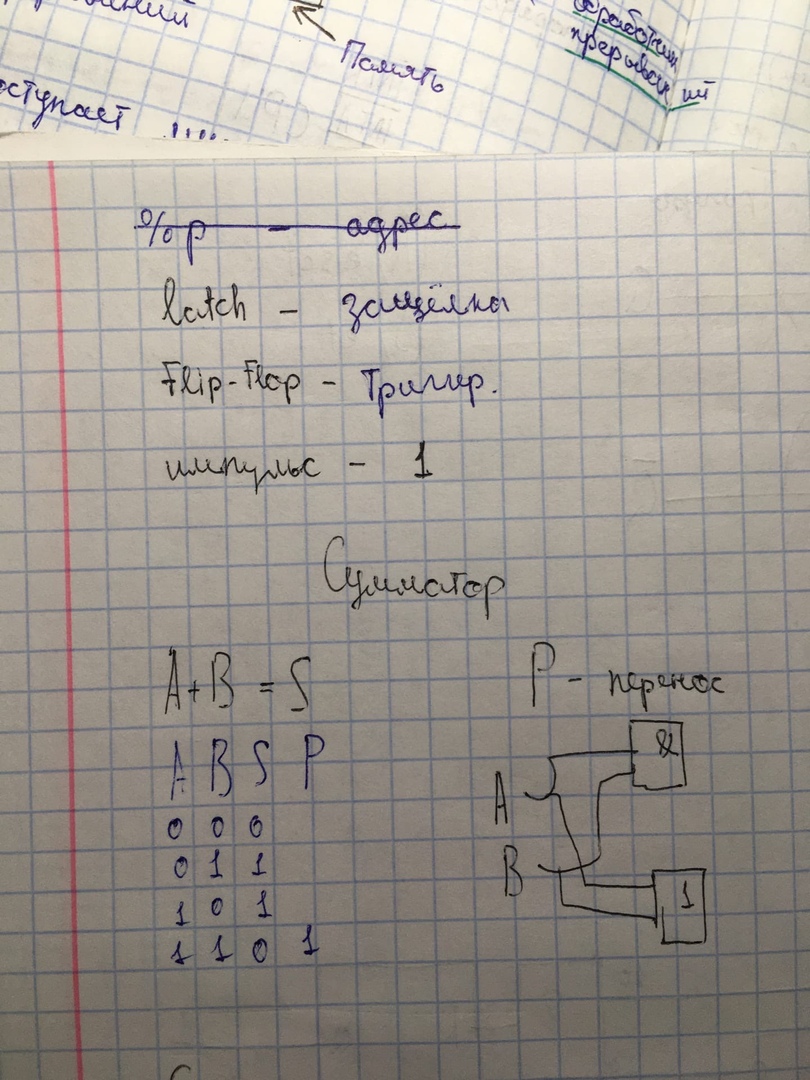 Память
прерываний
оступает
%p - адрес
latch - защёлка
Flip-Flop - Триггер.
импульс - 1
Сумматор
A+B = S
P - перенос
A B S P
0 0 0
0 1 1
1 0 1
1 1 0 1
&
A
B
1